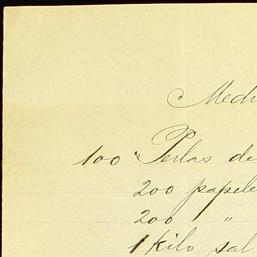 Medi
100 Perlas de
200 papele
200 "
1 kilo sal